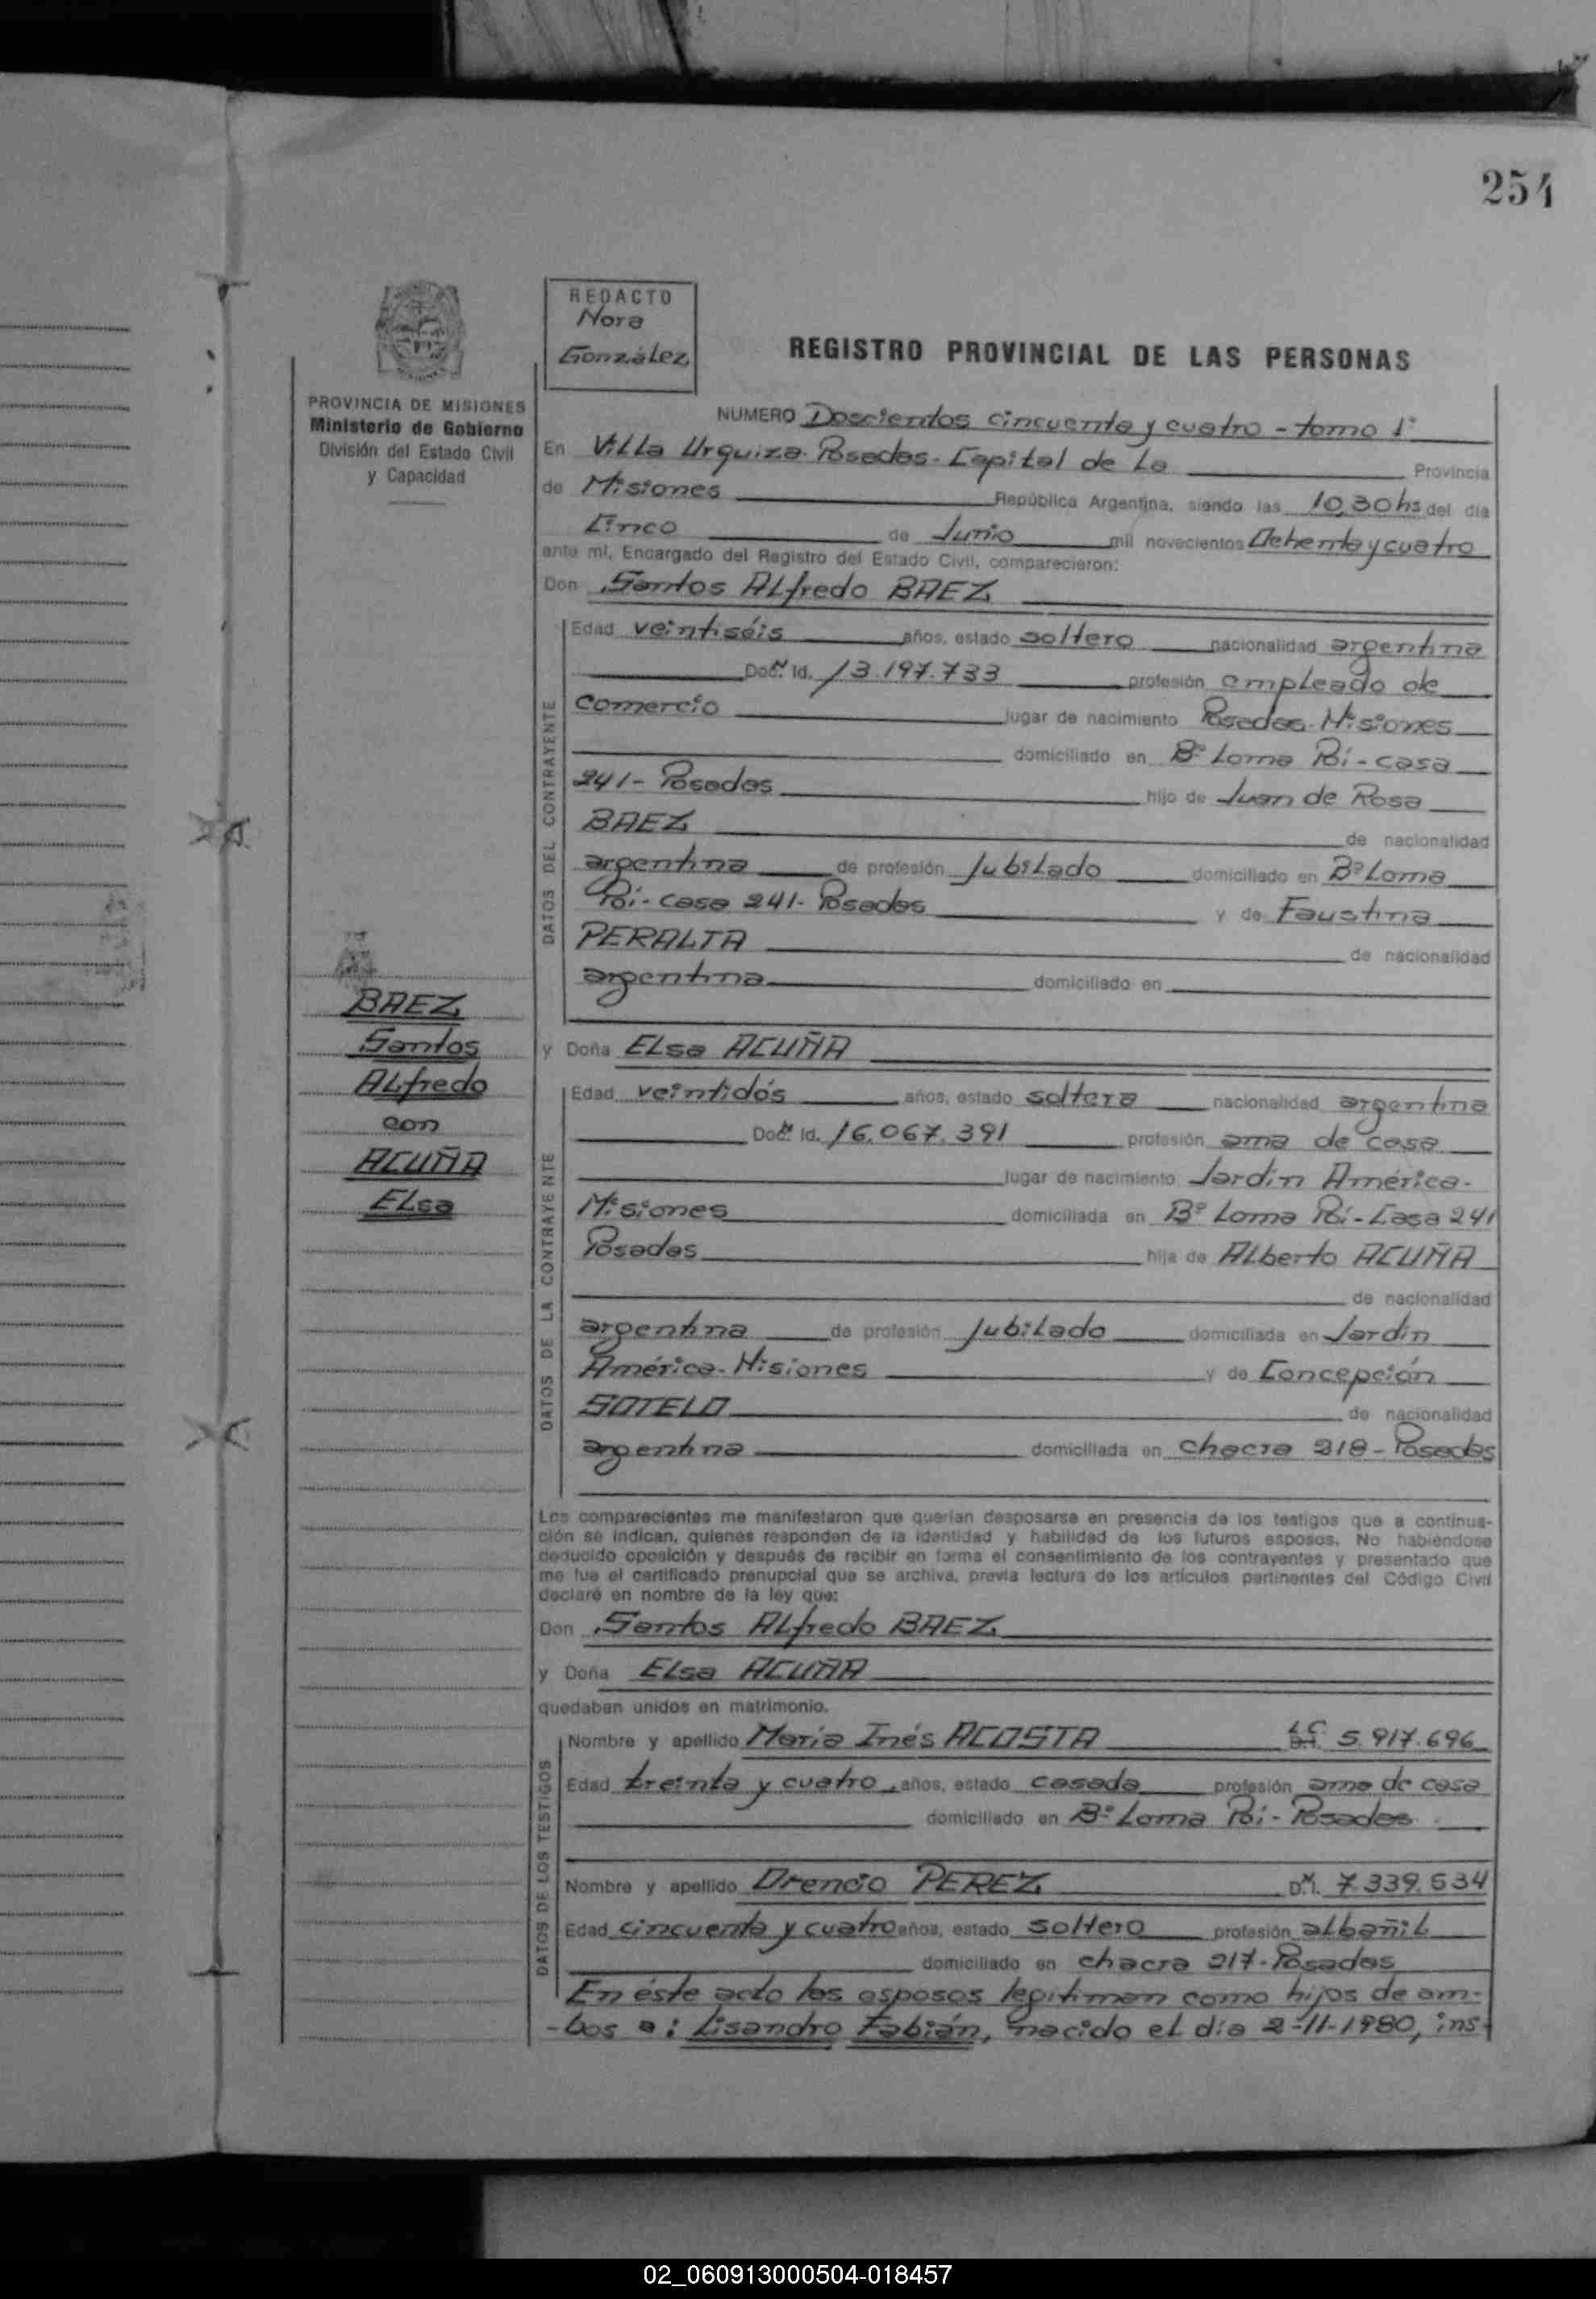 254
REDACTO
Nora
González
REGISTRO PROVINCIAL DE LAS PERSONAS
PROVINCIA DE MISIONES
Ministerio de Gobierno
División del Estado Civil
y Capacidad
NUMERO Doscientos cincuenta y cuatro - tomo 1º
En Villa Urquiza - Posadas - Capital de La Provincia
de Misiones República Argentina, siendo las 10,30 hs del día
Cinco de Junio mil novecientos Ochenta y cuatro
ante mi, Encargado del Registro del Estado Civil, comparecieron:
Don Santos ALfredo BAEZ
DATOS DEL CONTRAYENTE
Edad veintiséis años, estado soltero nacionalidad argentina
Doc. Id. 13.197.733 profesión empleado de
comercio lugar de nacimiento Posadas - Misiones
domiciliado en Bº Loma Poí - casa
241 - Posadas hijo de Juan de Rosa
BAEZ de nacionalidad
argentina de profesión Jubilado domiciliado en Bº Loma
Poí - casa 241 - Posadas y de Faustina
PERALTA de nacionalidad
argentina domiciliado en
BAEZ
Santos
ALfredo
con
ACUÑA
ELsa
y Doña ELsa ACUÑA
DATOS DE LA CONTRAYENTE
Edad veintidós años, estado soltera nacionalidad argentina
Doc. Id. 16.067.391 profesión ama de casa
lugar de nacimiento Jardín América -
Misiones domiciliada en Bº Loma Poí - Casa 241
Posadas hija de ALberto ACUÑA
de nacionalidad
argentina de profesión Jubilado domiciliada en Jardín
América - Misiones y de Concepción
SOTELO de nacionalidad
argentina domiciliada en chacra 218 - Posadas
Los comparecientes me manifestaron que querían desposarse en presencia de los testigos que a continua-
ción se indican, quienes responden de la identidad y habilidad de los futuros esposos. No habiéndose
deducido oposición y después de recibir en forma el consentimiento de los contrayentes y presentado que
me fue el certificado prenupcial que se archiva, previa lectura de los artículos pertinentes del Código Civil
declaré en nombre de la ley que:
Don Santos ALfredo BAEZ
y Doña ELsa ACUÑA
quedaban unidos en matrimonio.
DATOS DE LOS TESTIGOS
Nombre y apellido María Inés ACOSTA L.C. 5.917.696
Edad treinta y cuatro años, estado casada profesión ama de casa
domiciliado en Bº Loma Poí - Posadas
Nombre y apellido Orencio PEREZ D.M.I. 7.339.534
Edad cincuenta y cuatro años, estado soltero profesión albañiL
domiciliado en chacra 217 - Posadas
En éste acto los esposos legitiman como hijos de am-
-bos a: Lisandro Fabián, nacido el día 2-11-1980, ins-
02_060913000504-018457